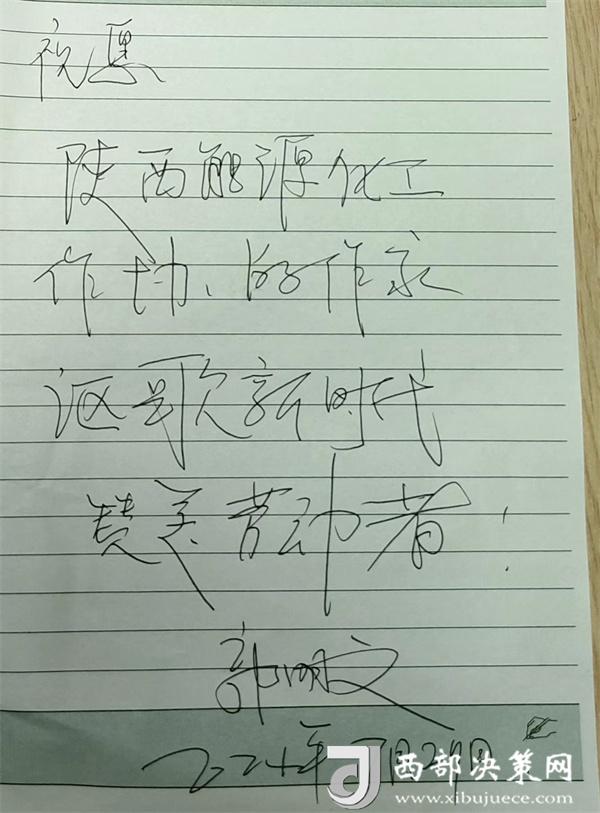 祝愿
陕西能源化工
作协、的作家
讴歌新时代
赞美劳动者！
郭明文
2024年7月29日
西部决策网
www.xibujuece.com